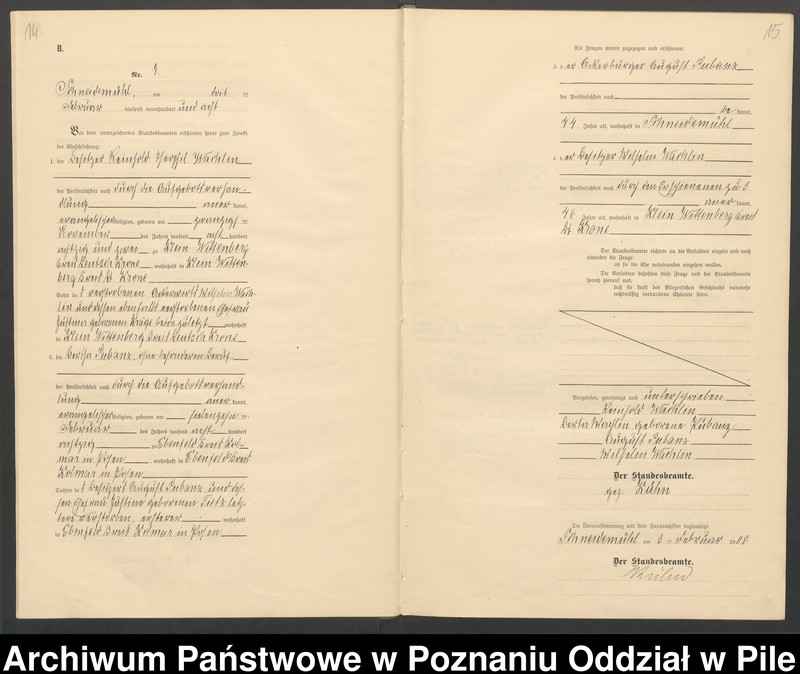 14
B.
Nr. 7.
Schneidemühl, am drit =
Februar tausend neunhundert und acht
Vor dem unterzeichneten Standesbeamten erschienen heute zum Zwecke
der Eheschließung:
1. der Besitzer Reinhold Wachlin
der Persönlichkeit nach durch die Aufgebotsverhan-
dlung aner kannt,
evangelischer Religion, geboren am zwanzigst
November des Jahres tausend acht hundert
achtzig und zwei zu Klein Wittenberg
Kreis Deutsch Krone, wohnhaft in Klein Witten-
berg Kreis Dt. Krone
Sohn des verstorbenen Ackerwirts Wilhelm Wach-
lin und dessen ebenfalls verstorbenen Ehefrau
Justine geborenen Krüger, beide zuletzt wohnhaft
in Klein Wittenberg Kreis Deutsch Krone
2. die Bertha Kubanz, ohne besonderen Beruf
der Persönlichkeit nach durch die Aufgebotsverhand-
lung aner kannt,
evangelischer Religion, geboren am siebenzehn =
Februar des Jahres tausend acht hundert
achtzig zu Ebenfeld Kreis Kol-
mar in Posen, wohnhaft in Ebenfeld Kreis
Kolmar in Posen
Tochter des Besitzers August Kubanz und des-
sen Ehefrau Justine geborenen Tietz letz-
tere verstorben, ersterer wohnhaft
in Ebenfeld Kreis Kolmar in Posen
15
Als Zeugen waren zugezogen und erschienen:
3. der Ackerbürger August Kubanz
der Persönlichkeit nach
be kannt,
44 Jahre alt, wohnhaft in Schneidemühl
4. der Besitzer Wilhelm Wachlin
der Persönlichkeit nach durch den Erschienenen zu 3.
aner kannt,
46 Jahre alt, wohnhaft in Klein Wittenberg Kreis
Dt. Krone
Der Standesbeamte richtete an die Verlobten einzeln und nach
einander die Frage:
ob sie die Ehe miteinander eingehen wollen.
Die Verlobten bejahten diese Frage und der Standesbeamte
sprach hierauf aus,
daß sie kraft des Bürgerlichen Gesetzbuchs nunmehr
rechtmäßig verbundene Eheleute seien.
Vorgelesen, genehmigt und unterschrieben
Reinhold Wachlin
Berta Wachlin geborene Kubanz
August Kubanz
Wilhelm Wachlin
Der Standesbeamte.
gez. Kühn
Die Übereinstimmung mit dem Hauptregister beglaubigt
Schneidemühl am 3. Februar 1908.
Der Standesbeamte.
Kühn
Archiwum Państwowe w Poznaniu Oddział w Pile